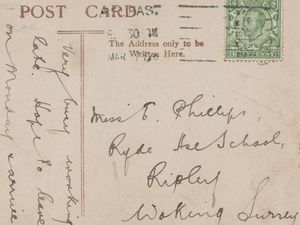 POST CARD
30 PM
MAR
The Address only to be
Written Here.
Very busy working
late. Hope to leave
on Monday & arrive
Miss E. Phillips,
Ryde Hse School,
Ripley
Woking Surrey